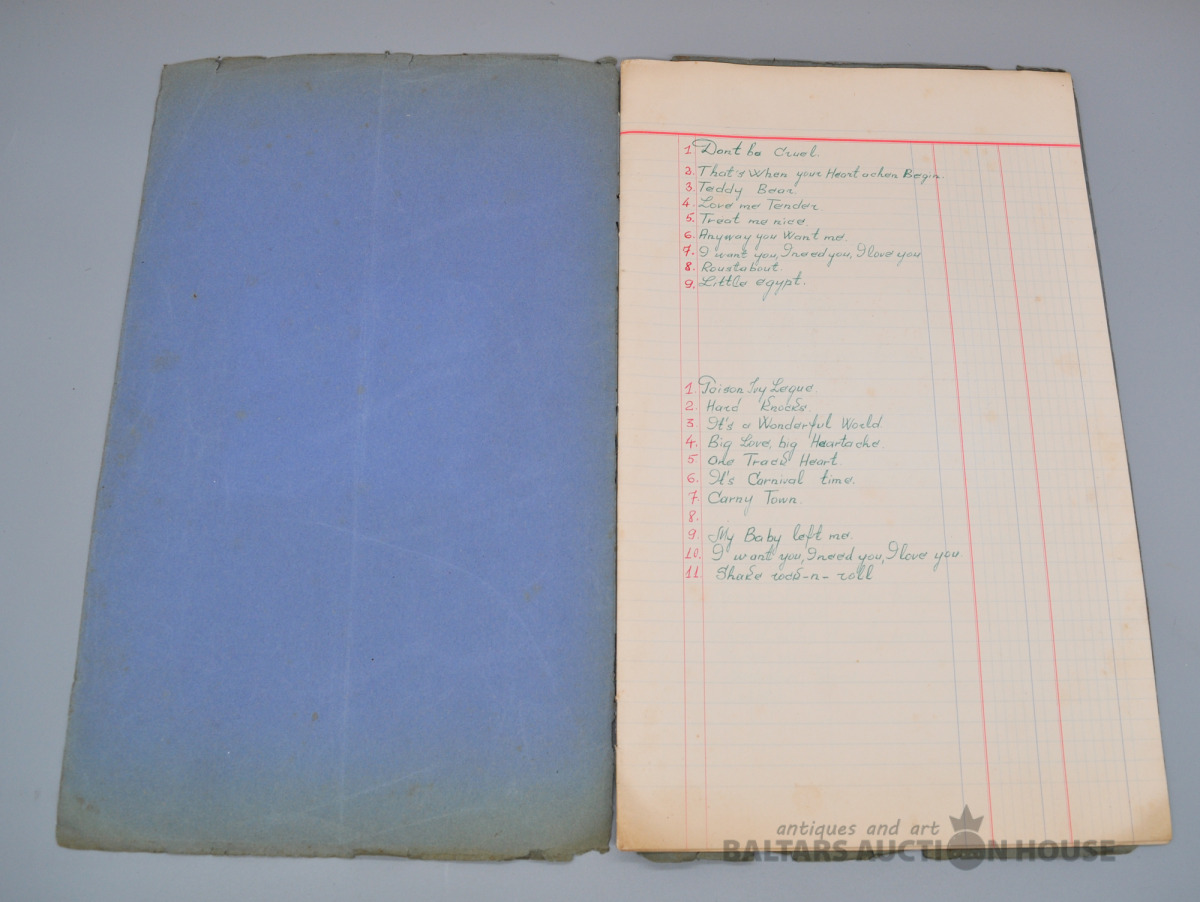 1 Dont be Cruel.
2. That's When your Heartachen Begin.
3. Teddy Bear.
4. Love me Tender
5. Treat me nice.
6. Anyway you Want me.
7. I want you, I need you, I love you
8. Roustabout.
9. Little egypt.
1. Poison Ivy Legue.
2. Hard Knocks.
3. It's a Wonderful World.
4. Big Love, big Heartache.
5 One Track Heart.
6. It's Carnival time.
7. Carny Town.
8.
9. My Baby left me.
10. I want you, I need you, I love you.
11. Shake rock-n-roll
antiques and art
BALTARS AUCTION HOUSE